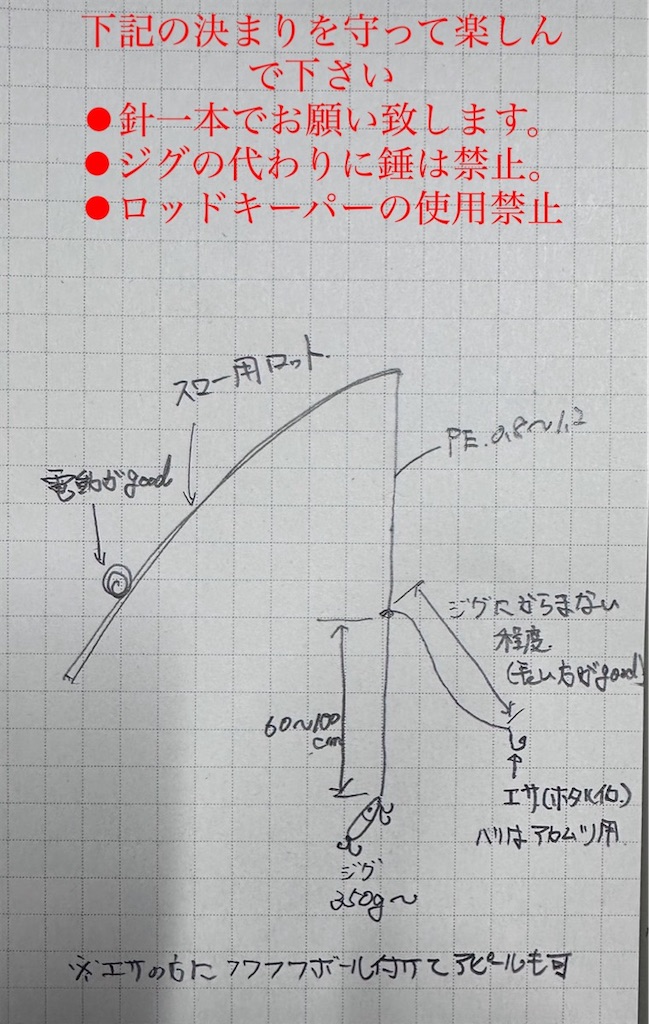 下記の決まりを守って楽しん
で下さい
●針一本でお願い致します。
●ジグの代わりに錘は禁止。
●ロッドキーパーの使用禁止
スロー用ロット.
PE.0.8〜1.2
電動がgood
ジグにからまない
程度
(長い方がgood)
60〜100
cm
エサ(ホタルイカ)
ハリはアカムツ用
ジグ
250g〜
※エサの方にフワフワボール付けてアピールも可